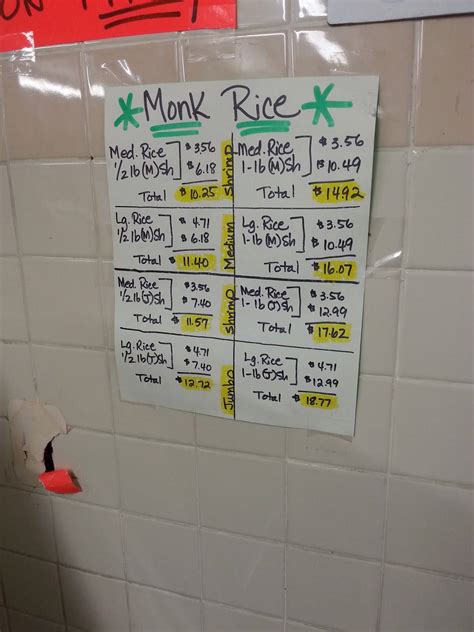 ON
Monk Rice
Med. Rice $3.56
1/2 lb (M) Sh $6.18
Total $10.25
Med. Rice $3.56
1-lb (M) Sh $10.49
Total $14.92
Shrimp
Lg. Rice $4.71
1/2 lb (M) Sh $6.18
Total $11.40
Lg. Rice $3.56
1-lb (M) Sh $10.49
Total $16.07
Medium
Med. Rice $3.56
1/2 lb (J) Sh $7.40
Total $11.57
Med. Rice $3.56
1-lb (J) Sh $12.99
Total $17.62
Shrimp
Lg. Rice $4.71
1/2 lb (J) Sh $7.40
Total $12.72
Lg. Rice $4.71
1-lb (J) Sh $12.99
Total $18.77
Jumbo